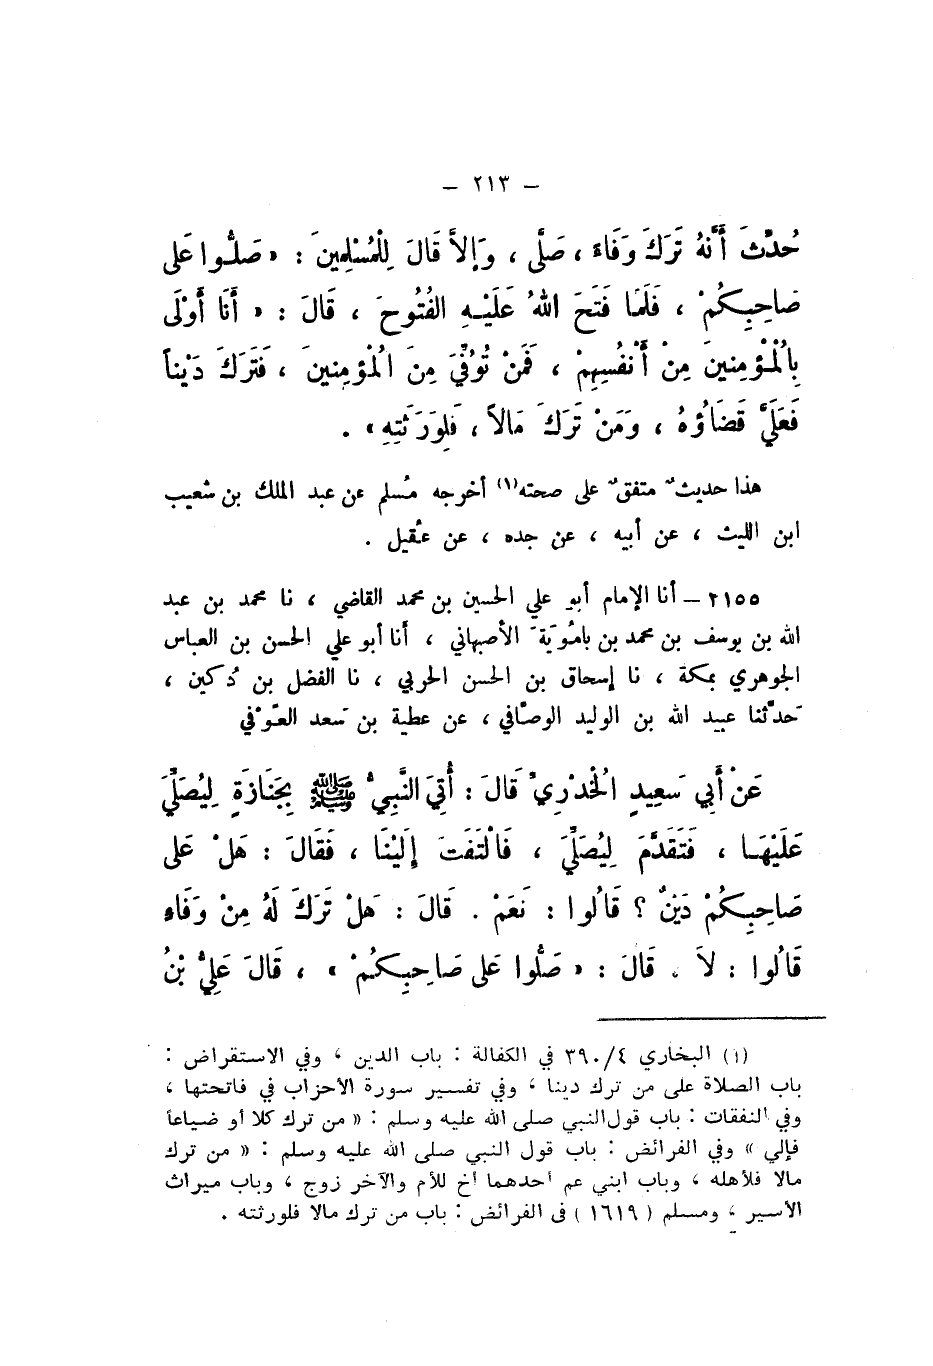 – ٢١٣ –
حُدِّثَ أَنَّهُ تَرَكَ وَفَاءً ، صَلَّى ، وَإِلاَّ قَالَ لِلْمُسْلِمِينَ : « صَلُّوا عَلى
صَاحِبِكُمْ ، فَلَمَّا فَتَحَ اللهُ عَلَيْهِ الفُتُوحَ ، قَالَ : « أَنَا أَوْلَى
بِالْمُؤْمِنِينَ مِنْ أَنْفُسِهِمْ ، فَمَنْ تُوُفِّيَ مِنَ الْمُؤْمِنِينَ ، فَتَرَكَ دَيْناً
فَعَلَيَّ قَضَاؤُهُ ، وَمَنْ تَرَكَ مَالاً ، فَلِوَرَثَتِهِ » .
هذا حديثٌ متفقٌ على صحته(١) أخرجه مُسلم عن عبد الملك بن شعيب
ابن الليث ، عن أبيه ، عن جده ، عن عُقيل .
٢١٥٥ – أنا الإمام أبو علي الحسين بن محمد القاضي ، نا محمد بن عبد
الله بن يوسف بن محمد بن بامُوَيَة الأصبهاني ، أنا أبو علي الحسن بن العباس
الجوهري بمكة ، نا إسحاق بن الحسن الحربي ، نا الفضل بن دُكين ،
حدَّثنا عبيد الله بن الوليد الوصَّافي ، عن عطية بن سَعد العَوْفي
عَنْ أَبِي سَعِيدٍ الْخُدْرِيِّ قَالَ : أُتِيَ النَّبِيُّ ﷺ بِجَنَازَةٍ لِيُصَلِّيَ
عَلَيْهَا ، فَتَقَدَّمَ لِيُصَلِّيَ ، فَالْتَفَتَ إِلَيْنَا ، فَقَالَ : هَلْ عَلى
صَاحِبِكُمْ دَيْنٌ ؟ قَالُوا : نَعَمْ . قَالَ : هَلْ تَرَكَ لَهُ مِنْ وَفَاءٍ
قَالُوا : لاَ . قَالَ : « صَلُّوا عَلى صَاحِبِكُمْ » ، قَالَ عَلِيُّ بْنُ
(١) البخاري ٣٩٠/٤ في الكفالة : باب الدين ، وفي الاستقراض :
باب الصلاة على من ترك دينا ، وفي تفسير سورة الأحزاب في فاتحتها ،
وفي النفقات : باب قول النبي صلى الله عليه وسلم : « من ترك كلا أو ضياعاً
فإلي » وفي الفرائض : باب قول النبي صلى الله عليه وسلم : « من ترك
مالا فلأهله ، وباب ابني عم أحدهما أخ للأم والآخر زوج ، وباب ميراث
الأسير ، ومسلم ( ١٦١٩ ) في الفرائض : باب من ترك مالا فلورثته .